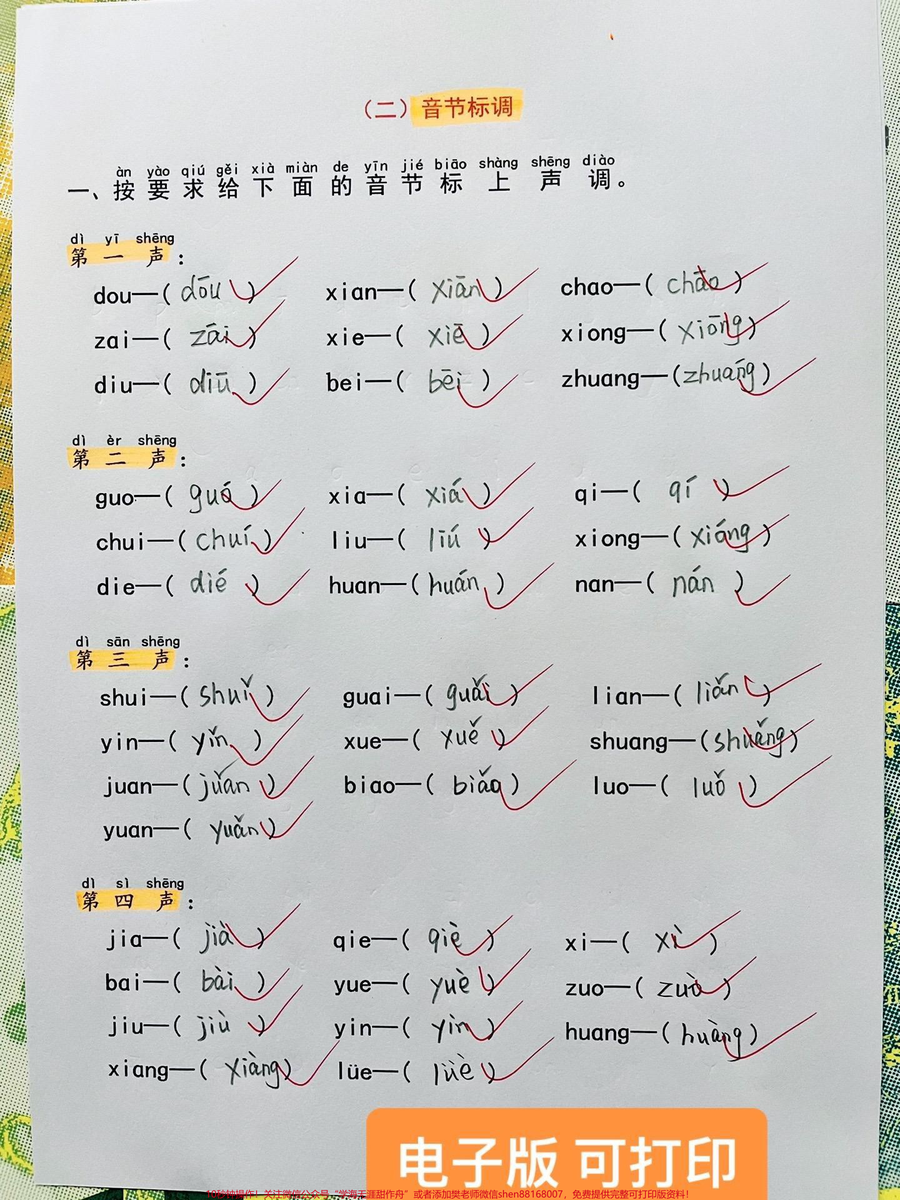 （二）音节标调
àn yào qiú gěi xià miàn de yīn jié biāo shàng shēng diào
一、按要求给下面的音节标上声调。
dì yī shēng
第一声：
dou—( dōu ) xian—( xiān ) chao—( chāo )
zai—( zāi ) xie—( xiē ) xiong—( xiōng )
diu—( diū ) bei—( bēi ) zhuang—(zhuáng)
dì èr shēng
第二声：
guo—( guó ) xia—( xiá ) qi—( qí )
chui—( chuí ) liu—( liú ) xiong—( xiáng )
die—( dié ) huan—( huán ) nan—( nán )
dì sān shēng
第三声：
shui—( shuǐ ) guai—( guǎi ) lian—( liǎn )
yin—( yǐn ) xue—( xuě ) shuang—(shuǎng)
juan—( juǎn ) biao—( biǎo ) luo—( luǒ )
yuan—( yuǎn )
dì sì shēng
第四声：
jia—( jià ) qie—( qiè ) xi—( xì )
bai—( bài ) yue—( yuè ) zuo—( zuò )
jiu—( jiù ) yin—( yìn ) huang—( huàng )
xiang—( xiàng ) lüe—( lüè )
电子版 可打印
10秒钟操作！关注微信公众号“学海无涯甜作舟”或者添加樊老师微信shen88168007，免费提供完整可打印版资料！